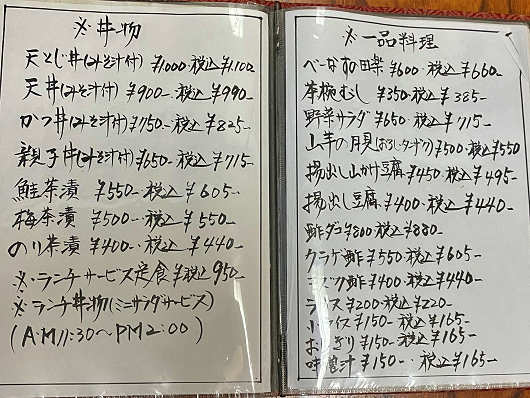 ※丼物
天とじ丼(みそ汁付) ¥1,000-税込¥1,100
天丼(みそ汁付) ¥900-税込¥990-
かつ丼(みそ汁付) ¥750-税込¥825-
親子丼(みそ汁付) ¥650-税込¥715-
鮭茶漬 ¥550-税込¥605-
梅茶漬 ¥500-税込¥550-
のり茶漬 ¥400-税込¥440-
※ランチサービス定食 税込950-
※ランチ丼物(ミニサラダサービス)
(A・M11:30〜PM2:00)
※一品料理
べーなす田楽 ¥600-税込¥660-
茶椀むし ¥350-税込¥385-
野菜サラダ ¥650-税込¥715-
山芋の月見(おろし・タンザク) ¥500-税込¥550
揚出し山かけ豆腐 ¥450-税込¥495-
揚出し豆腐 ¥400-税込¥440-
酢ダコ ¥800税込¥880-
クラゲ酢 ¥550-税込¥605-
モズク酢 ¥400-税込¥440-
ライス ¥200-税込¥220-
小ライス ¥150-税込¥165-
おにぎり ¥150-税込¥165-
味噌汁 ¥150-税込¥165-